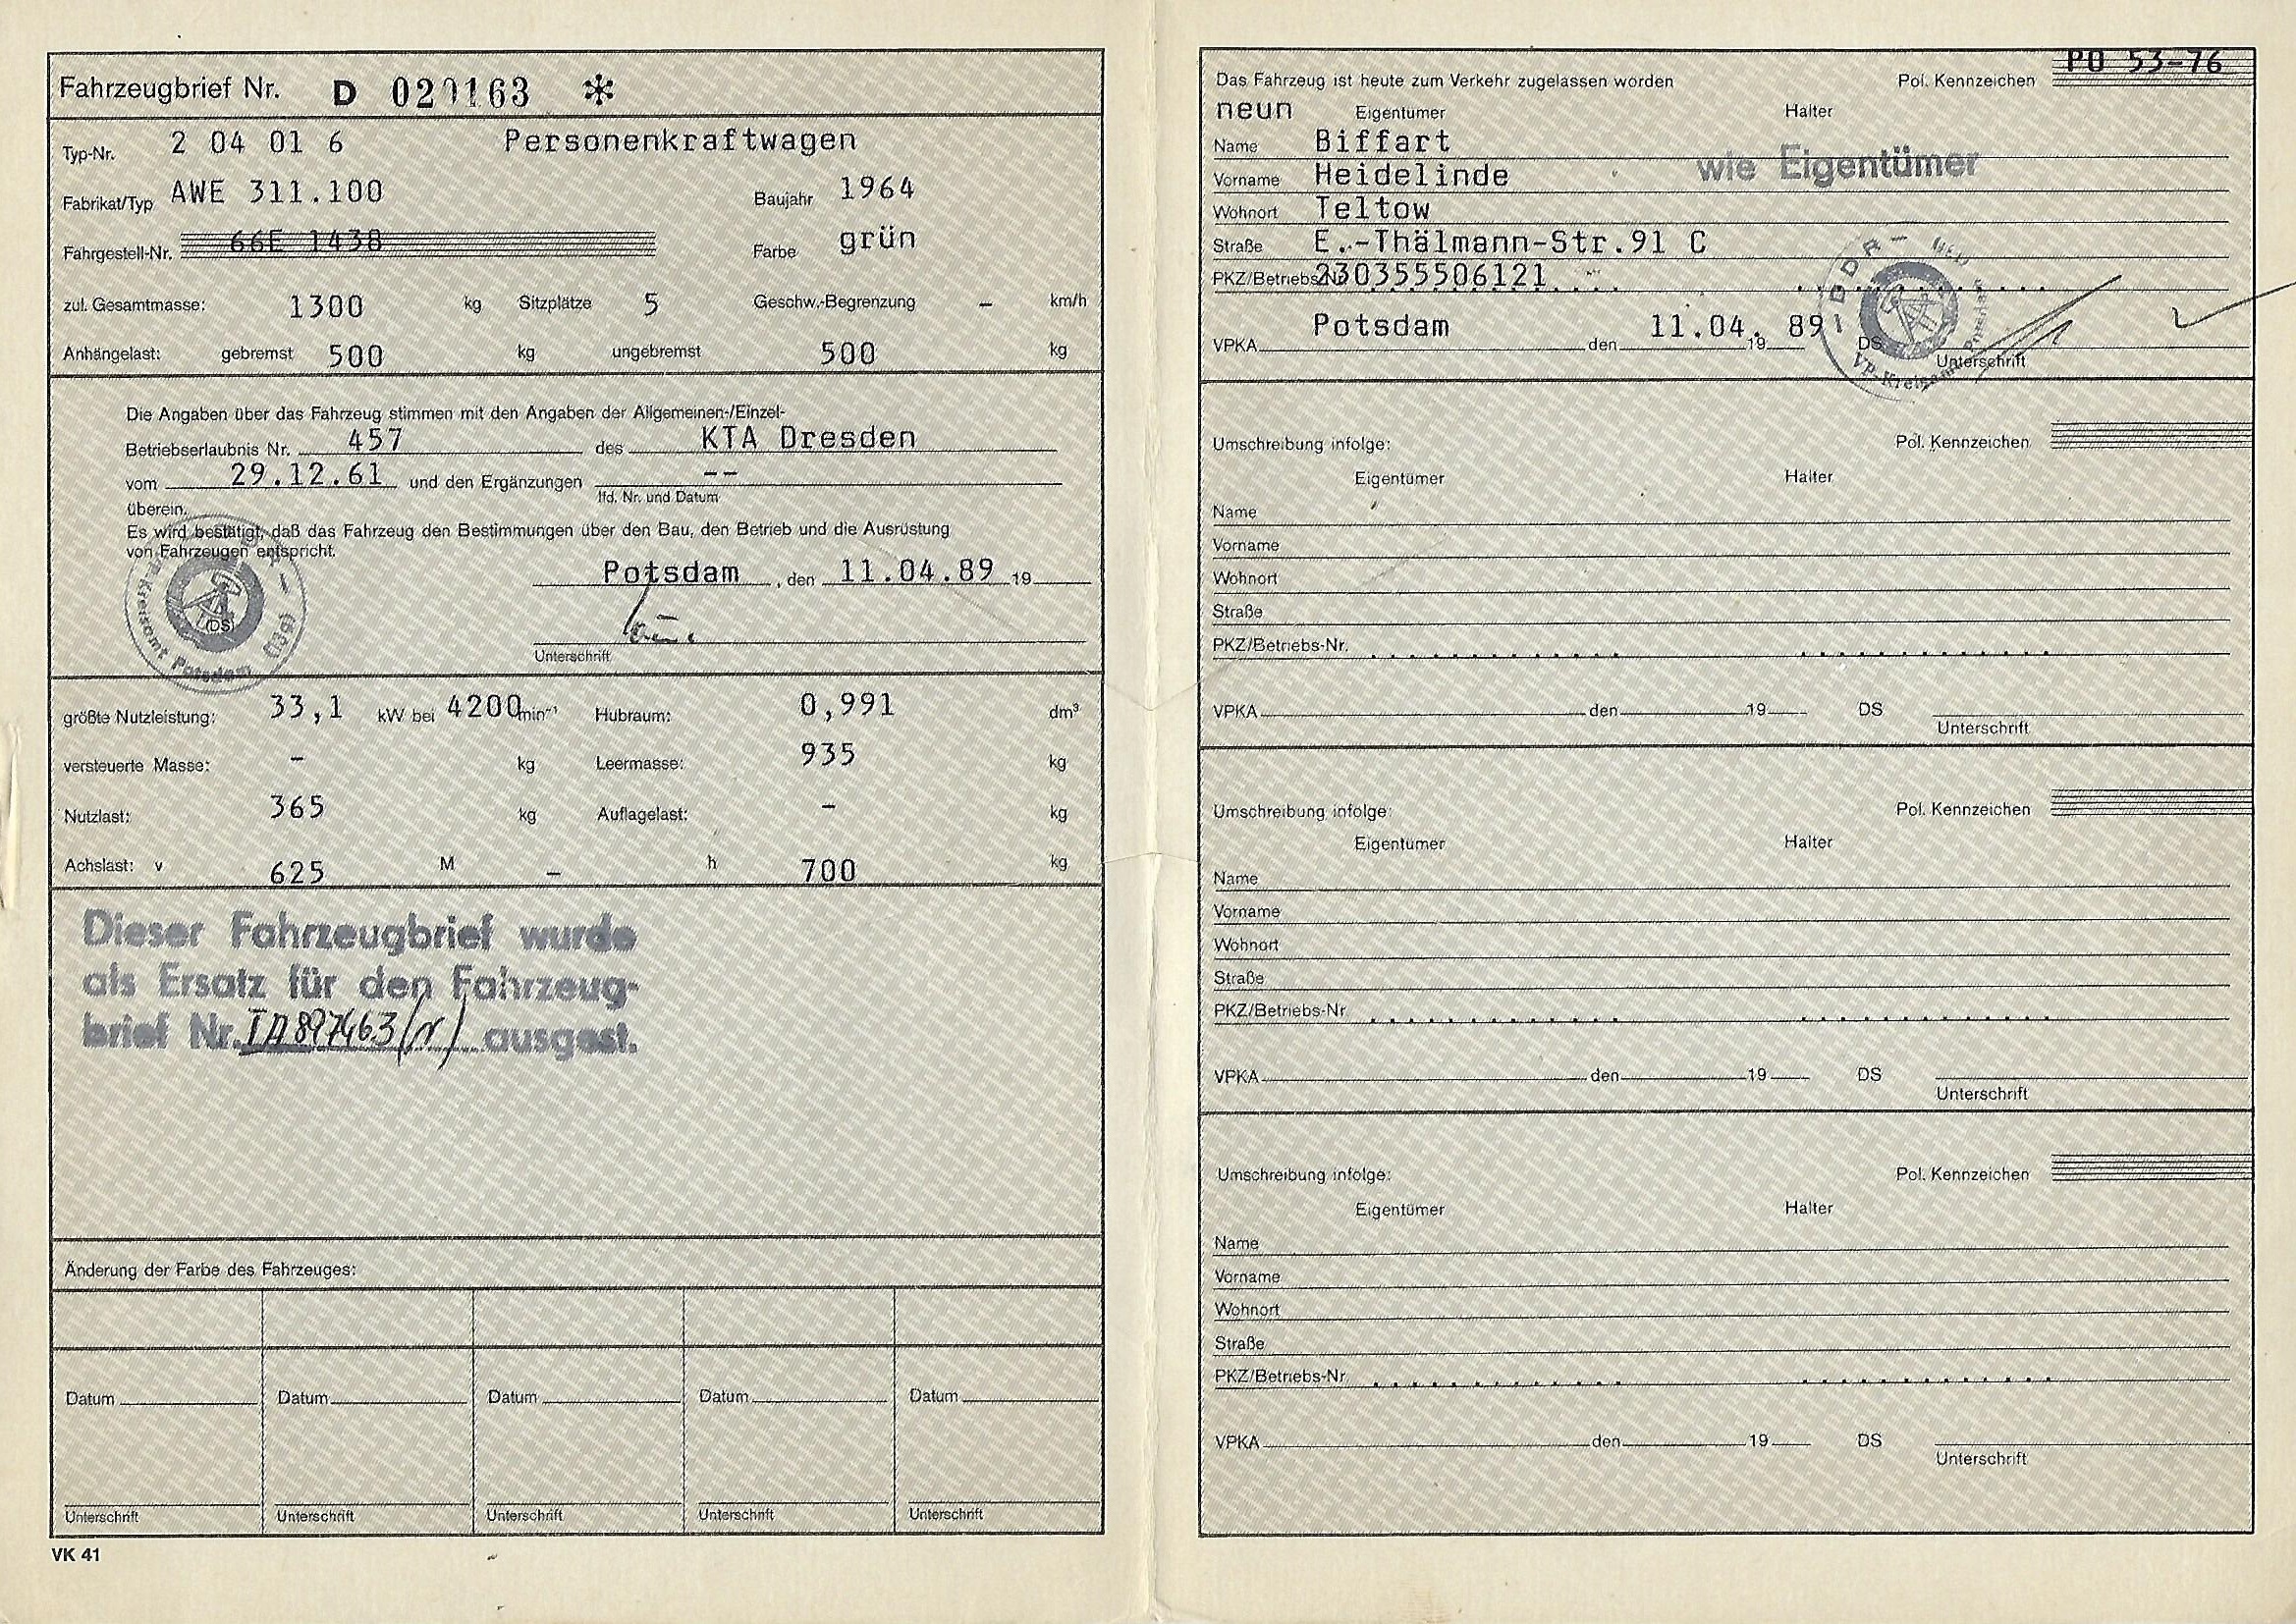 Fahrzeugbrief Nr. D 020163 *
Typ-Nr. 2 04 01 6 Personenkraftwagen
Fabrikat/Typ AWE 311.100 Baujahr 1964
Fahrgestell-Nr. 66E 1438 Farbe grün
zul. Gesamtmasse: 1300 kg Sitzplätze 5 Geschw.-Begrenzung - km/h
Anhängelast: gebremst 500 kg ungebremst 500 kg
Die Angaben über das Fahrzeug stimmen mit den Angaben der Allgemeinen-/Einzel-
Betriebserlaubnis Nr. 457 des KTA Dresden
vom 29.12.61 und den Ergänzungen --
lfd. Nr. und Datum
überein.
Es wird bestätigt, daß das Fahrzeug den Bestimmungen über den Bau, den Betrieb und die Ausrüstung
von Fahrzeugen entspricht.
Potsdam, den 11.04.89 19
(DS)
Unterschrift
größte Nutzleistung: 33,1 kW bei 4200 min⁻¹ Hubraum: 0,991 dm³
versteuerte Masse: - kg Leermasse: 935 kg
Nutzlast: 365 kg Auflagelast: - kg
Achslast: v 625 M - h 700 kg
Dieser Fahrzeugbrief wurde
als Ersatz für den Fahrzeug-
brief Nr. ausgest.
Änderung der Farbe des Fahrzeuges:
Datum Datum Datum Datum Datum
Unterschrift Unterschrift Unterschrift Unterschrift Unterschrift
VK 41
Das Fahrzeug ist heute zum Verkehr zugelassen worden Pol. Kennzeichen PO 53-76
neun Eigentümer Halter
Name Biffart wie Eigentümer
Vorname Heidelinde
Wohnort Teltow
Straße E.-Thälmann-Str.91 C
PKZ/Betriebs-Nr. 230355506121
VPKA Potsdam den 11.04. 19 89 DS
Unterschrift
Umschreibung infolge: Pol. Kennzeichen
Eigentümer Halter
Name
Vorname
Wohnort
Straße
PKZ/Betriebs-Nr.
VPKA den 19 DS
Unterschrift
Umschreibung infolge: Pol. Kennzeichen
Eigentümer Halter
Name
Vorname
Wohnort
Straße
PKZ/Betriebs-Nr.
VPKA den 19 DS
Unterschrift
Umschreibung infolge: Pol. Kennzeichen
Eigentümer Halter
Name
Vorname
Wohnort
Straße
PKZ/Betriebs-Nr.
VPKA den 19 DS
Unterschrift